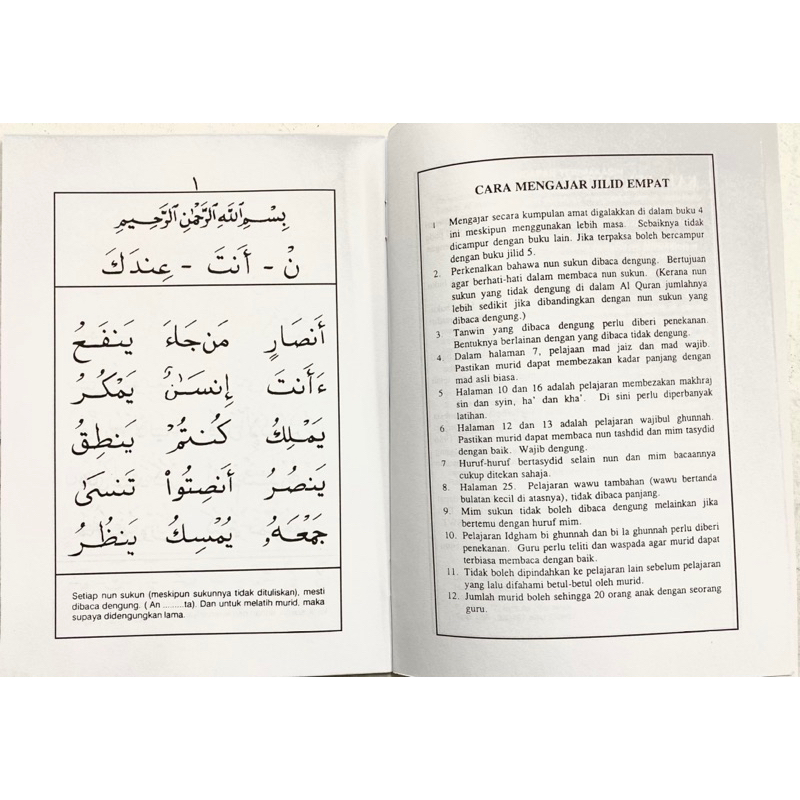 ١
بِسْمِ اللَّهِ الرَّحْمَٰنِ الرَّحِيمِ
نْ - أَنتَ - عِندَكَ
أَنصَارٍ مَن جَاءَ يَنفَعُ
ءَأَنتَ إِنسَـٰنٌ يَمْكُرُ
يَمْلِكُ كُنتُمْ يَنطِقُ
يَنصُرُ أَنصِتُوا۟ تَنسَىٰ
جَمْعَهُۥ يُمْسِكُ يَنظُرُ
Setiap nun sukun (meskipun sukunnya tidak dituliskan), mesti
dibaca dengung. ( An ........ta). Dan untuk melatih murid, maka
supaya didengungkan lama.
CARA MENGAJAR JILID EMPAT
1 Mengajar secara kumpulan amat digalakkan di dalam buku 4
ini meskipun menggunakan lebih masa. Sebaiknya tidak
dicampur dengan buku lain. Jika terpaksa boleh bercampur
dengan buku jilid 5.
2. Perkenalkan bahawa nun sukun dibaca dengung. Bertujuan
agar berhati-hati dalam membaca nun sukun. (Kerana nun
sukun yang tidak dengung di dalam Al Quran jumlahnya
lebih sedikit jika dibandingkan dengan nun sukun yang
dibaca dengung.)
3 Tanwin yang dibaca dengung perlu diberi penekanan.
Bentuknya berlainan dengan yang dibaca tidak dengung.
4. Dalam halaman 7, pelajaan mad jaiz dan mad wajib.
Pastikan murid dapat membezakan kadar panjang dengan
mad asli biasa.
5 Halaman 10 dan 16 adalah pelajaran membezakan makhraj
sin dan syin, ha' dan kha'. Di sini perlu diperbanyak
latihan.
6 Halaman 12 dan 13 adalah pelajaran wajibul ghunnah.
Pastikan murid dapat membaca nun tashdid dan mim tasydid
dengan baik. Wajib dengung.
7 Huruf-huruf bertasydid selain nun dan mim bacaannya
cukup ditekan sahaja.
8. Halaman 25. Pelajaran wawu tambahan (wawu bertanda
bulatan kecil di atasnya), tidak dibaca panjang.
9. Mim sukun tidak boleh dibaca dengung melainkan jika
bertemu dengan huruf mim.
10. Pelajaran Idgham bi ghunnah dan bi la ghunnah perlu diberi
penekanan. Guru perlu teliti dan waspada agar murid dapat
terbiasa membaca dengan baik.
11. Tidak boleh dipindahkan ke pelajaran lain sebelum pelajaran
yang lalu difahami betul-betul oleh murid.
12. Jumlah murid boleh sehingga 20 orang anak dengan seorang
guru.